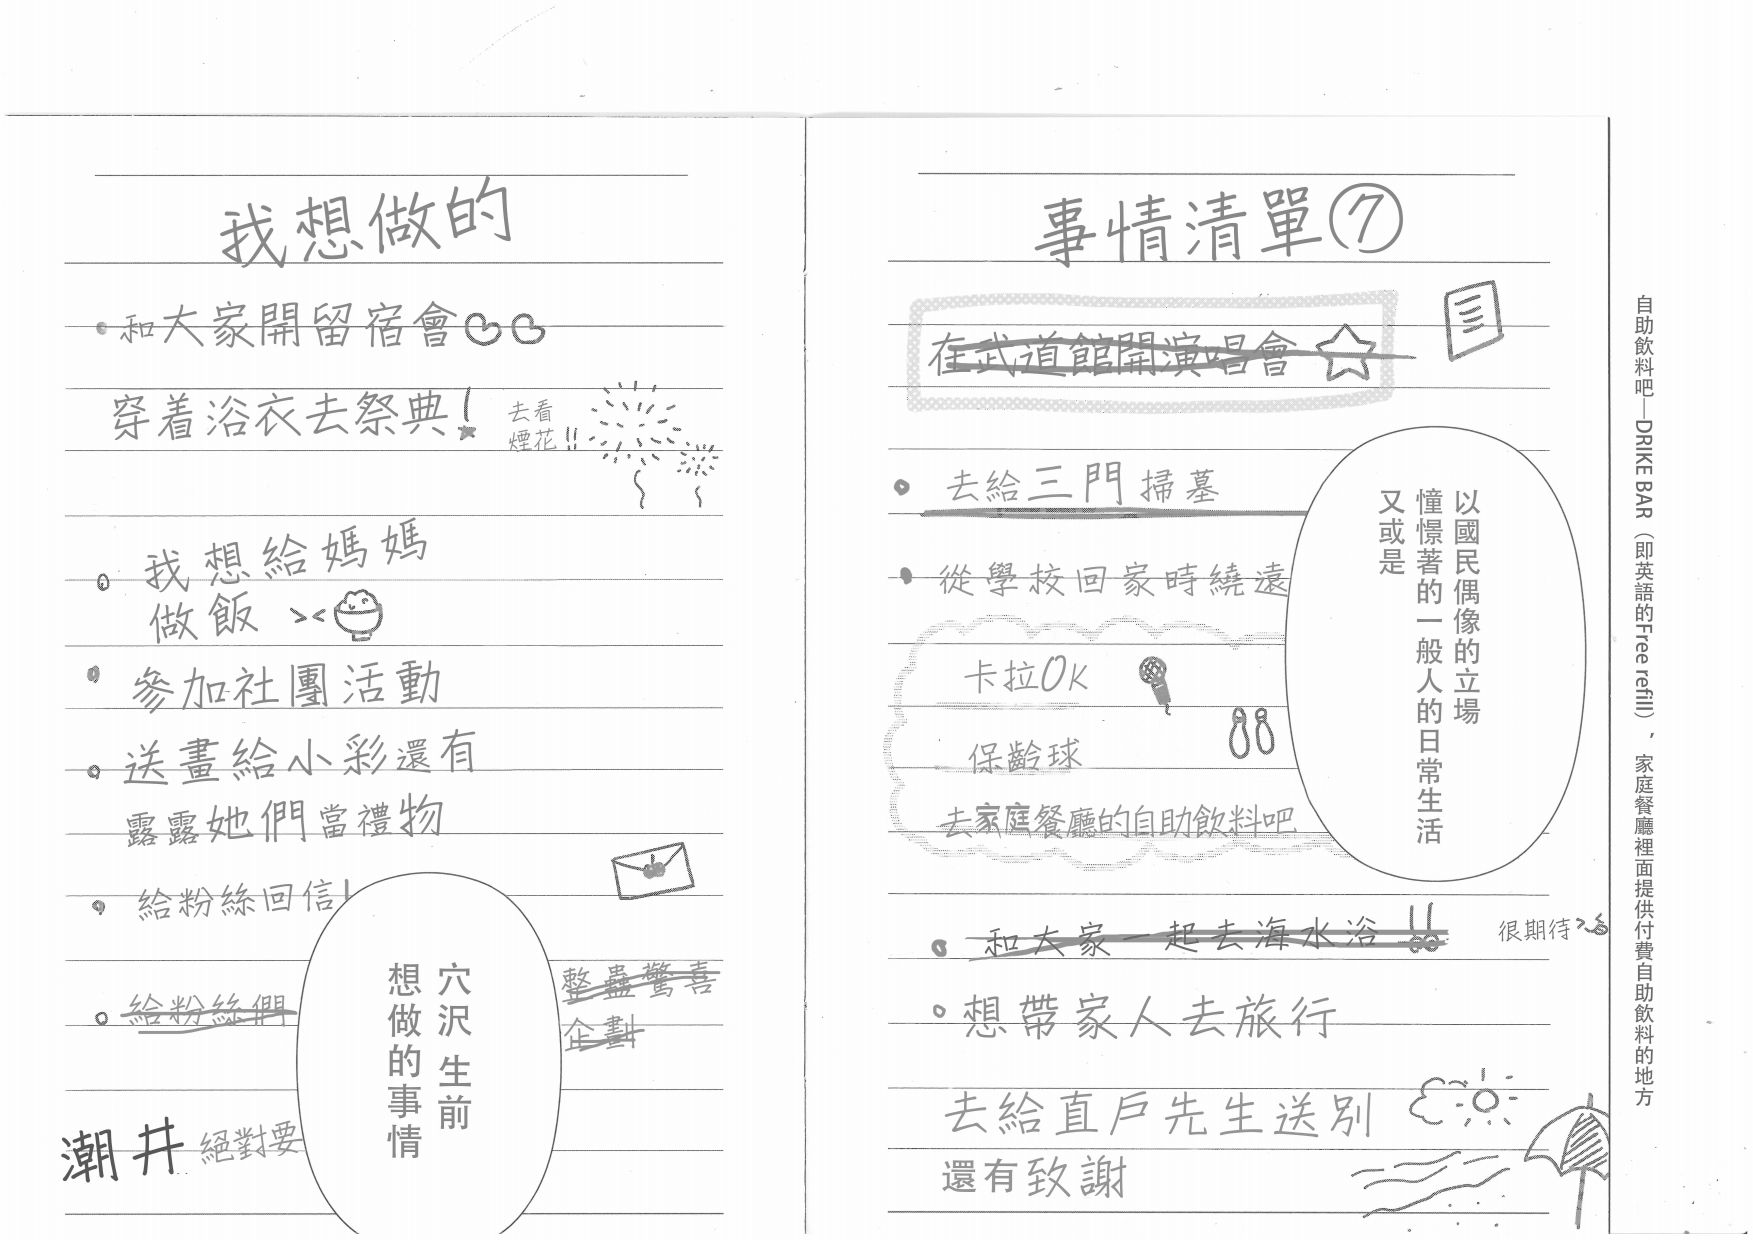 我想做的
事情清單⑦
和大家開留宿會
穿着浴衣去祭典！
去看
煙花!!
我想給媽媽
做飯 ><
參加社團活動
送畫給小彩還有
露露她們當禮物
給粉絲回信！
給粉絲們
整蠱驚喜
企劃
潮井 絕對要
穴沢 生前
想做的事情
在武道館開演唱會☆
去給三門掃墓
從學校回家時繞遠
卡拉OK
保齡球
去家庭餐廳的自助飲料吧
以國民偶像的立場
憧憬著的一般人的日常生活
又或是
和大家一起去海水浴!!
很期待
想帶家人去旅行
去給直戶先生送別
還有致謝
自助飲料吧—DRIKE BAR（即英語的Free refill），家庭餐廳裡面提供付費自助飲料的地方